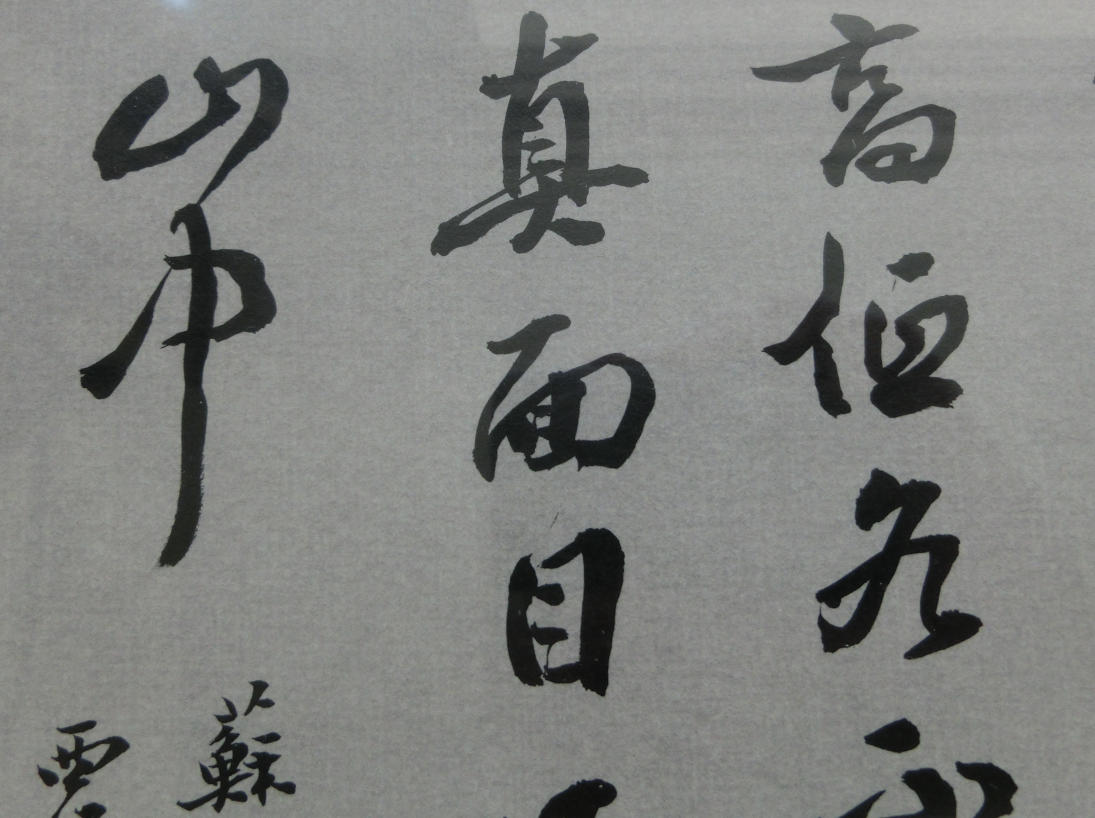 高低各
真面目
山中
蘇